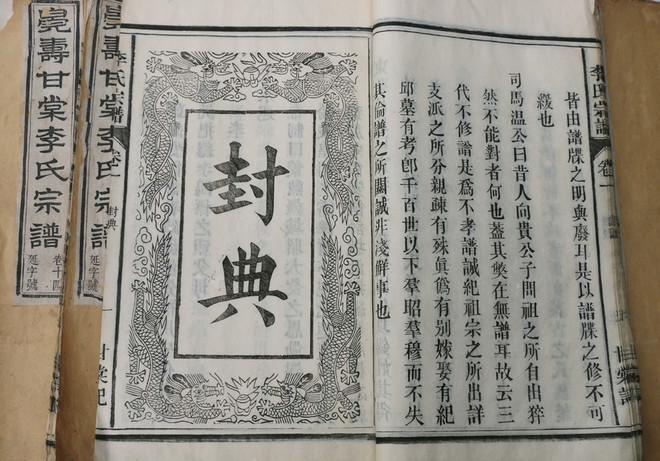 李氏宗譜
卷一
皆由譜牒之明與廢耳是以譜牒之修不可
緩也
司馬温公曰昔人向貴公子問祖之所自出猝
然不能對者何也蓋其弊在無譜耳故云三
代不修譜是爲不孝譜誠紀祖宗之所出詳
支派之所分親疎有殊眞僞有别嫁娶有紀
邱墓有考卽千百世以下羣昭羣穆而不失
其倫譜之所關誠非淺鮮事也
封典
氏宗譜
封典
一
甘棠記
壽甘棠李氏宗譜
延字號
壽甘棠李氏宗譜
卷十四
延字號